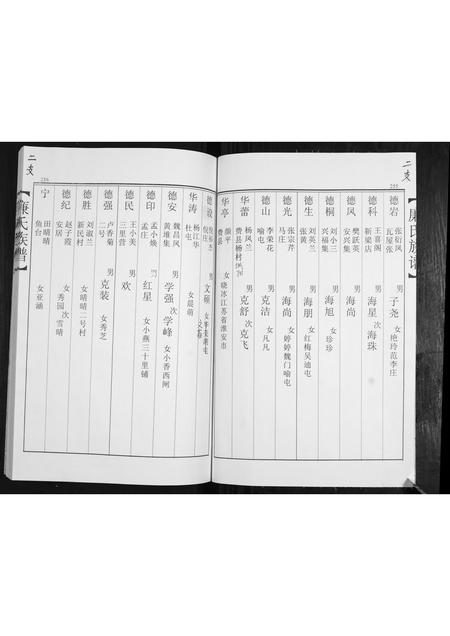 二支
【廉氏族谱】
255
德岩 张衍凤 瓦屋张 男 子尧 女 艳玲范李庄
德科 王喜阁 新梁店 男 海星 次 海珠
德凤 樊跃英 安兴集 男 海尚
德桐 刘小三 兴福集 男 海旭 女 珍珍
德生 刘英兰 张黄 男 海朋 女 红梅吴迪屯
德光 张宗芹 马庄 男 海尚 女 婷婷魏门喻屯
德山 李荣花 喻屯 男 克洁 女 凡凡
华蕾 杨凤兰 费县杨村 男 克舒 次 克飞
华亭 颜平 费县 女 晓冰江苏省淮安市
二支
【廉氏族谱】
256
倪庄 男 文硕
华涛 杨江华 杜屯 女 晨萌
德安 魏昌凤 黄堆集 男 学强 次 学峰 女 小香西闸
德印 孟小焕 孟庄 红星 女 小燕三十里铺
德民 王小美 三里营 男 欢
德强 卢香菊 二号 男 克装 女 秀芝
德胜 刘淑兰 新民村 女 晴晴二号村
德纪 赵子霞 安居 女 秀园 次 雪晴
宁 田晴晴 鱼台 女 亚涵